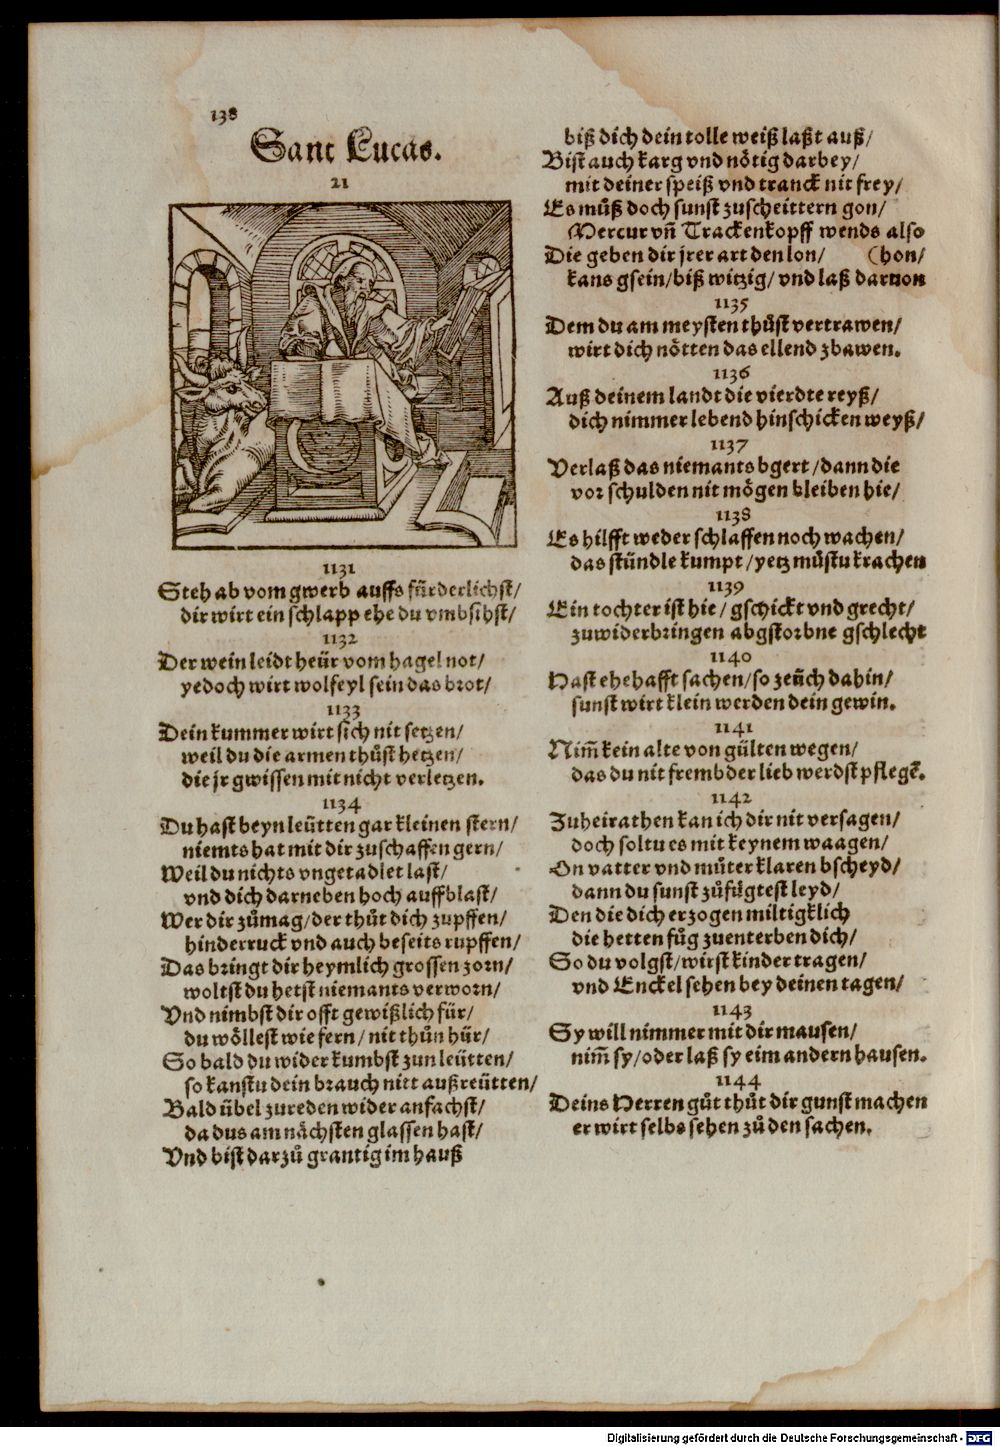 138
Sanct Lucas.
21
1131
Steh ab vom gwerb auffs fürderlichst/
dir wirt ein schlapp ehe du vmbsihst/
1132
Der wein leidt heür vom hagel not/
yedoch wirt wolfeyl sein das brot/
1133
Dein kummer wirt sich nit setzen/
weil du die armen thůst hetzen/
die jr gwissen mit nicht verletzen.
1134
Du hast beyn leütten gar kleinen stern/
niemts hat mit dir zuschaffen gern/
Weil du nichts vngetadlet last/
vnd dich darneben hoch auffblast/
Wer dir zůmag/der thůt dich zupffen/
hinderruck vnd auch beseits rupffen/
Das bringt dir heymlich grossen zorn/
woltst du hetst niemants verworn/
Vnd nimbst dir offt gewißlich für/
du wöllest wie fern/nit thůn hür/
So bald du wider kumbst zun leütten/
so kanstu dein brauch nitt außreütten/
Bald übel zureden wider anfachst/
da dus am nächsten glassen hast/
Vnd bist darzů grantig im hauß
biß dich dein tolle weiß laßt auß/
Bist auch karg vnd nötig darbey/
mit deiner speiß vnd tranck nit frey/
Es můß doch sunst zuscheittern gon/
Mercur vñ Trackenkopff wends also
Die geben dir jrer art den lon/ (hon/
kans gsein/biß witzig/vnd laß daruon
1135
Dem du am meysten thůst vertrawen/
wirt dich nötten das ellend zbawen.
1136
Auß deinem landt die vierdte reyß/
dich nimmer lebend hinschicken weyß/
1137
Verlaß das niemants bgert/dann die
vor schulden nit mögen bleiben hie/
1138
Es hilfft weder schlaffen noch wachen/
das stündle kumpt/yetz můstu krachen
1139
Ein tochter ist hie/gschickt vnd grecht/
zuwiderbringen abgstorbne gschlecht
1140
Hast ehehafft sachen/so zeüch dahin/
sunst wirt klein werden dein gewin.
1141
Nim̃ kein alte von gülten wegen/
das du nit frembder lieb werdst pflegẽ.
1142
Zuheirathen kan ich dir nit versagen/
doch soltu es mit keynem waagen/
On vatter vnd můter klaren bscheyd/
dann du sunst zůfügtest leyd/
Den die dich erzogen miltigklich
die hetten fůg zuenterben dich/
So du volgst/wirst kinder tragen/
vnd Enckel sehen bey deinen tagen/
1143
Sy will nimmer mit dir mausen/
nim̃ sy/oder laß sy eim andern hausen.
1144
Deins Herren gůt thůt dir gunst machen
er wirt selbs sehen zů den sachen.
Digitalisierung gefördert durch die Deutsche Forschungsgemeinschaft - DFG